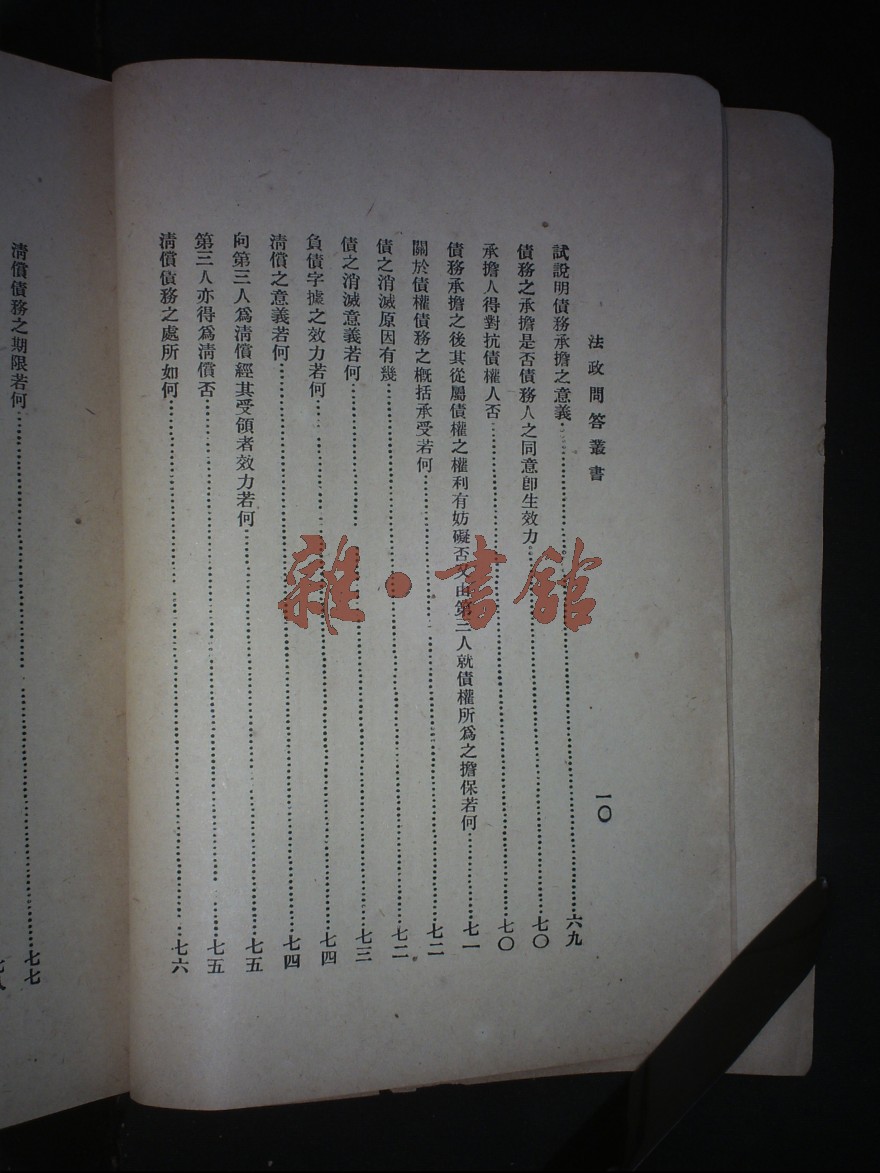 法政問答叢書
一〇
試說明債務承擔之意義……六九
債務之承擔是否債務人之同意卽生效力……七〇
承擔人得對抗債權人否……七〇
債務承擔之後其從屬債權之權利有妨礙否又由第三人就債權所爲之擔保若何……七一
關於債權債務之槪括承受若何……七二
債之消滅原因有幾……七二
債之消滅意義若何……七三
負債字據之效力若何……七四
淸償之意義若何……七四
向第三人爲淸償經其受領者效力若何……七五
第三人亦得爲淸償否……七五
淸償債務之處所如何……七六
淸償債務之期限若何……七七
雜·書館